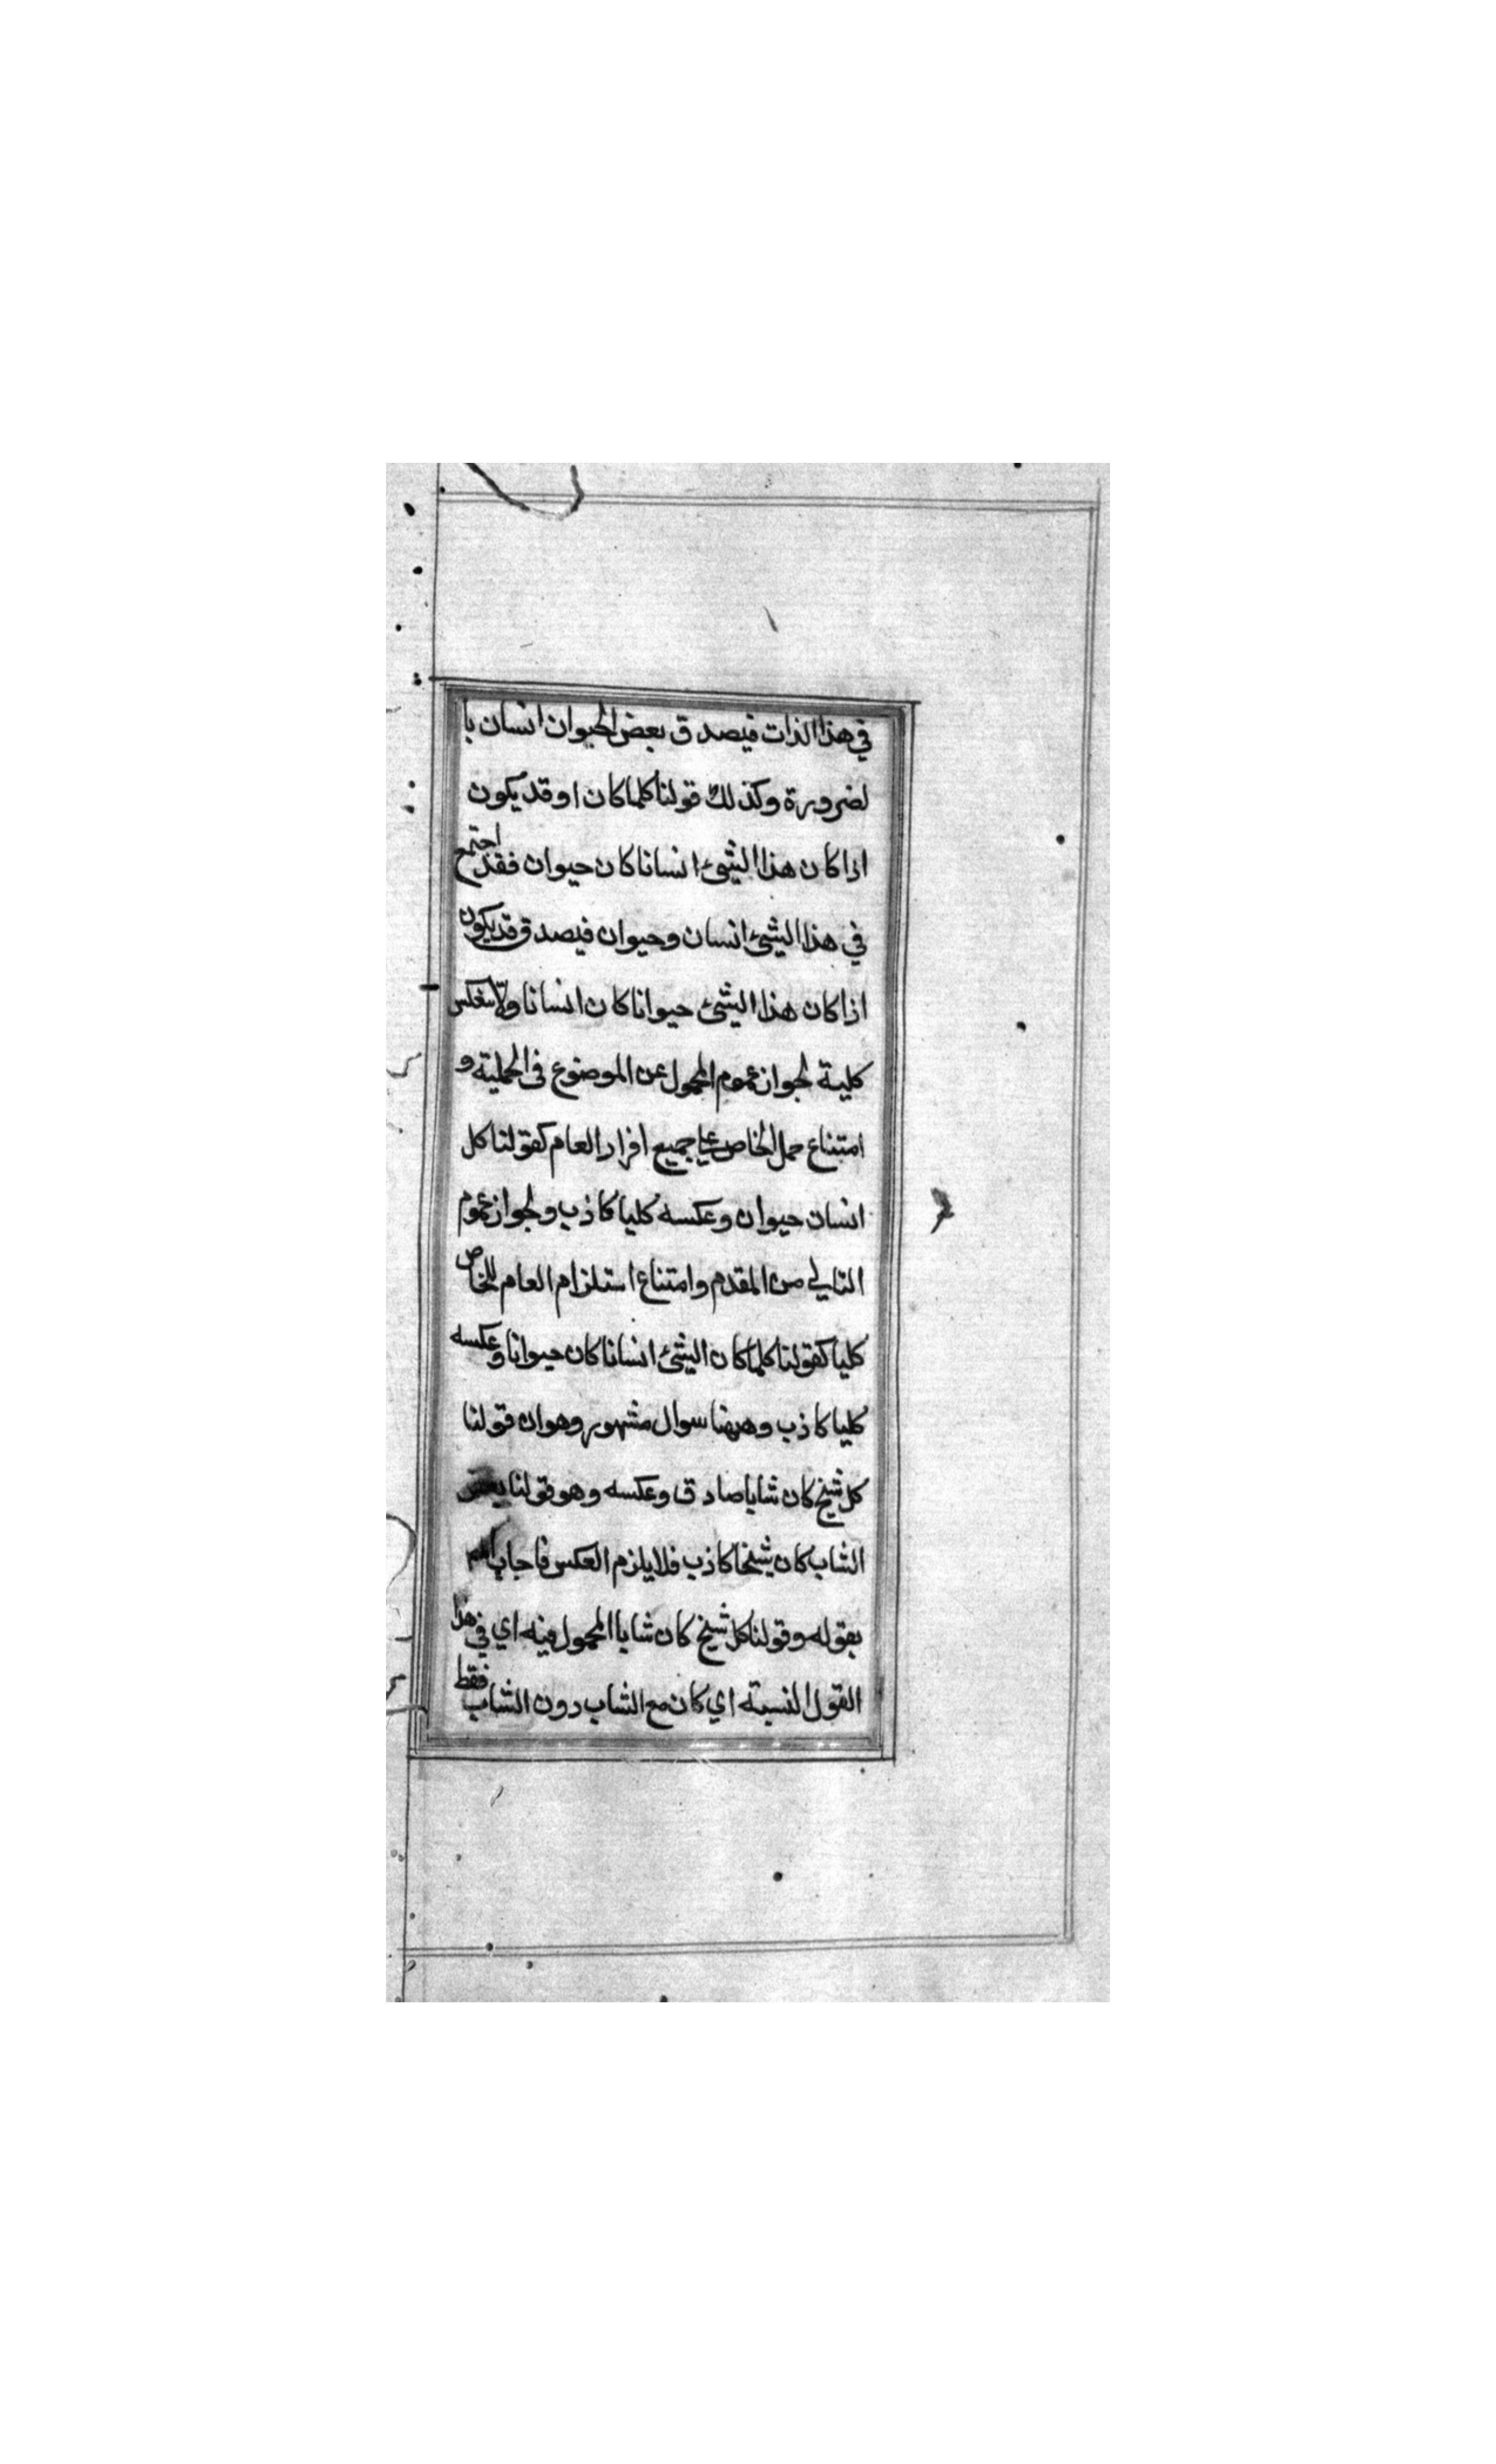 في هذا الذات فيصدق بعض الحيوان انسان با
لضرورة وكذلك قولنا كلما كان او قد يكون
اذا كان هذا الشئ انسانا كان حيوان فقد اجتمع
في هذا الشئ انسان وحيوان فيصدق قد يكون
اذا كان هذا الشئ حيوانا كان انسانا ولا ينعكس
كلية لجواز عموم المحمول عن الموضوع في الحملية و
امتناع حمل الخاص على جميع افراد العام كقولنا كل
انسان حيوان وعكسه كليا كاذب ولجواز عموم
التالي من المقدم وامتناع استلزام العام للخاص
كليا كقولنا كلما كان الشئ انسانا كان حيوانا وعكسه
كليا كاذب وههنا سوال مشهور وهو ان قولنا
كل شيخ كان شابا صادق وعكسه وهو قولنا بعض
الشاب كان شيخا كاذب فلا يلزم العكس فاجاب
بقوله وقولنا كل شيخ كان شابا المحمول فيه اي في هذا
القول النسبة اي كان مع الشاب دون الشاب فقط